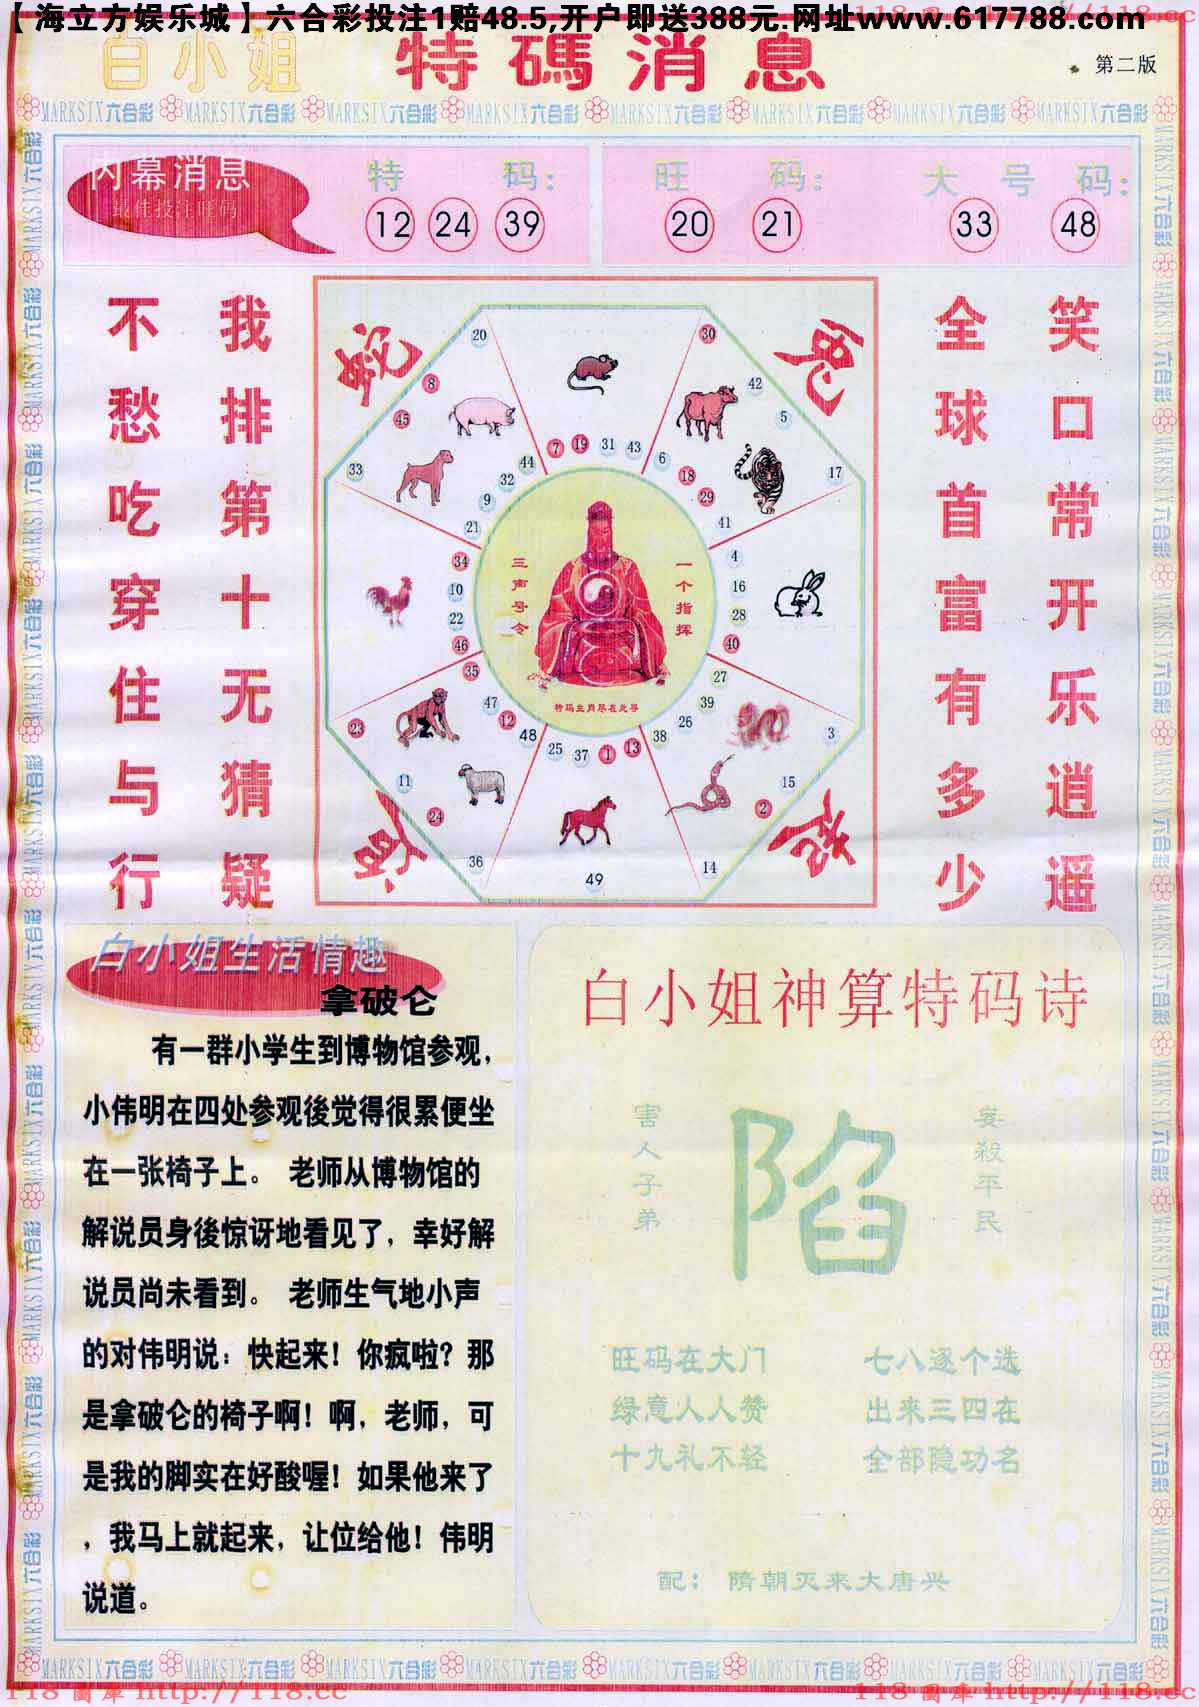 【海立方娱乐城】六合彩投注1赔48.5,开户即送388元.网址www.617788.com
白小姐 特碼消息
第二版
MARKSIX六合彩 MARKSIX六合彩 MARKSIX六合彩 MARKSIX六合彩 MARKSIX六合彩 MARKSIX六合彩 MARKSIX六合彩 MARKSIX六合彩
内幕消息
最佳投注旺码
特 码:
12 24 39
旺 码:
20 21
大 号 码:
33 48
不愁吃穿住与行
我排第十无猜疑
全球首富有多少
笑口常开乐逍遥
蛇
兔
20
30
8
42
45
5
33
17
7 19 31 43
44
32
9
21
6
18
29
41
34
10
22
46
4
16
28
40
35
47
12
48
27
39
26
38
25 37 1 13
23
11
24
36
3
15
2
14
49
三声号令
一个指挥
特码生肖尽在此寻
白小姐生活情趣
拿破仑
有一群小学生到博物馆参观,
小伟明在四处参观後觉得很累便坐
在一张椅子上。 老师从博物馆的
解说员身後惊讶地看见了, 幸好解
说员尚未看到。 老师生气地小声
的对伟明说: 快起来! 你疯啦? 那
是拿破仑的椅子啊! 啊, 老师, 可
是我的脚实在好酸喔! 如果他来了
, 我马上就起来, 让位给他! 伟明
说道。
白小姐神算特码诗
害人子弟
陷
妄殺平民
旺码在大门 七八逐个选
绿意人人赞 出来三四在
十九礼不轻 全部隐功名
配: 隋朝灭来大唐兴
MARKSIX六合彩 MARKSIX六合彩 MARKSIX六合彩 MARKSIX六合彩 MARKSIX六合彩 MARKSIX六合彩 MARKSIX六合彩 MARKSIX六合彩
118 圖庫 http://118.cc
118 圖庫 http://118.cc